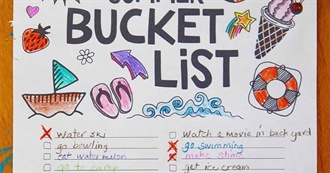 SUMMER
BUCKET
LiST
water ski
go bowling
eat watermelon
go to camp
watch a movie in back yard
go swimming
make slime
get ice cream